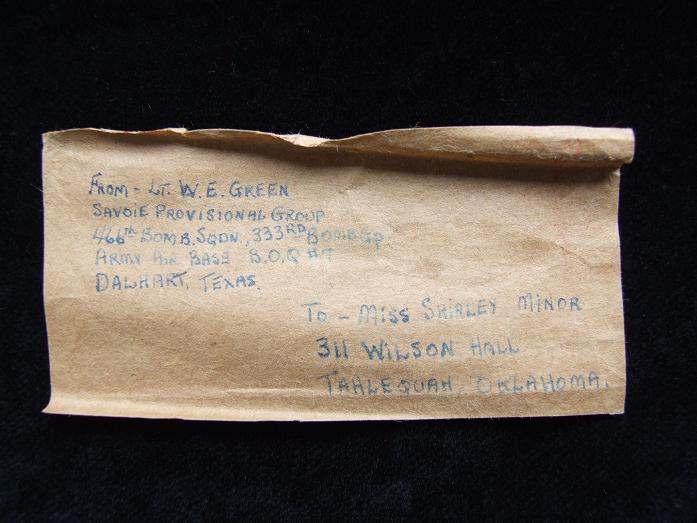 FROM - LT. W. E. GREEN
SAVOIE PROVISIONAL GROUP
466th BOMB. SQDN., 333RD BOMB. GP.
ARMY AIR BASE B.O.Q #7
DALHART, TEXAS.
TO - MISS SHIRLEY MINOR
311 WILSON HALL
TAHLEQUAH, OKLAHOMA.